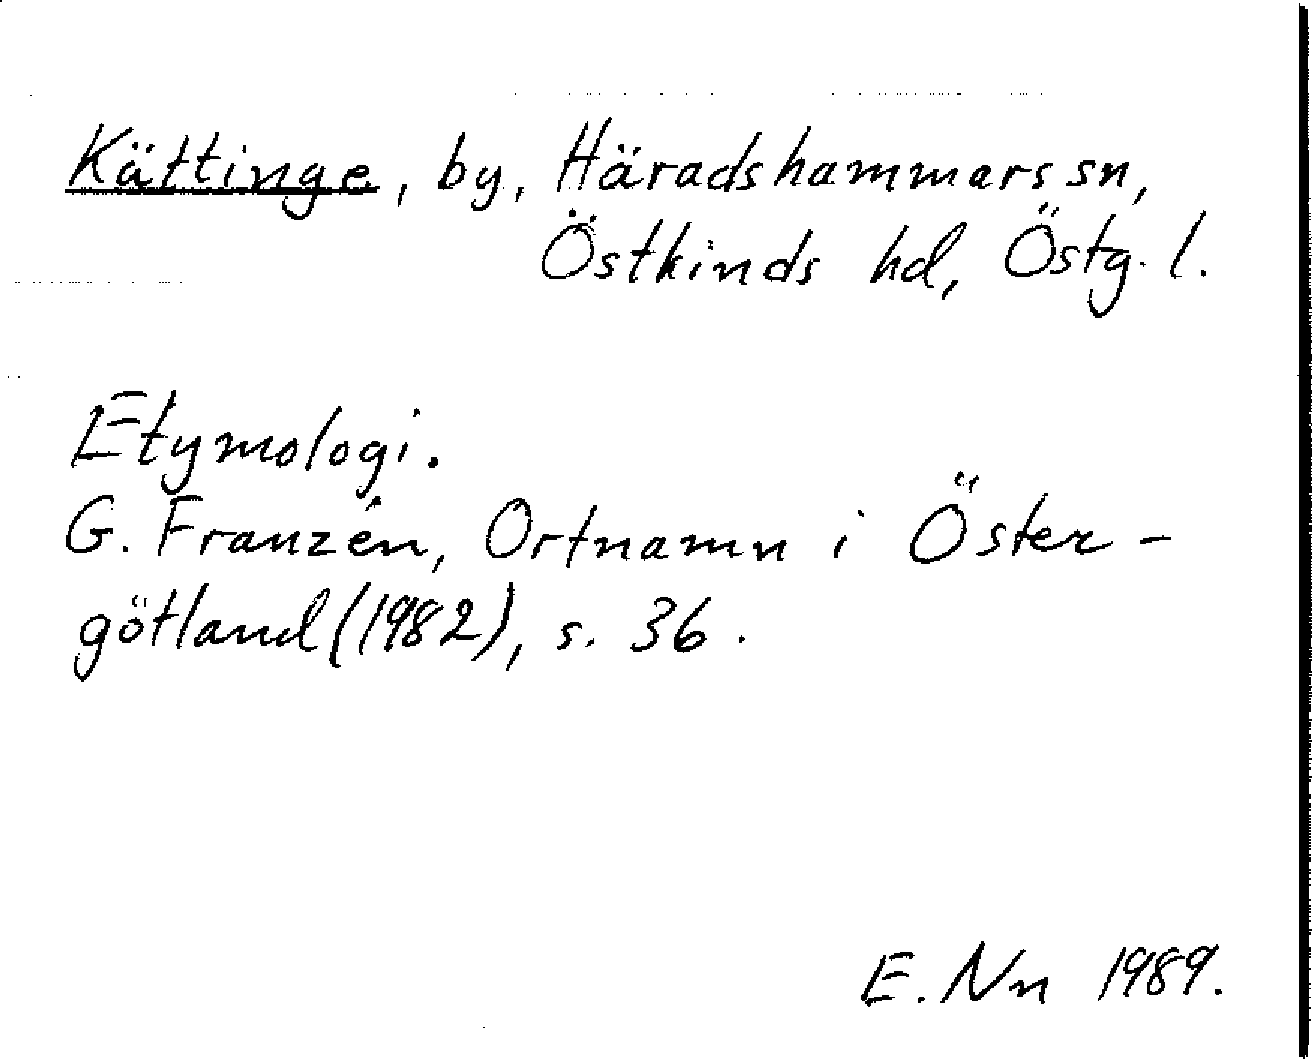 Kättinge, by, Häradshammars sn,
Östkinds hd, Östg. l.
Etymologi.
G. Franzén, Ortnamn i Öster-
götland (1982), s. 36.
E. Nn 1989.